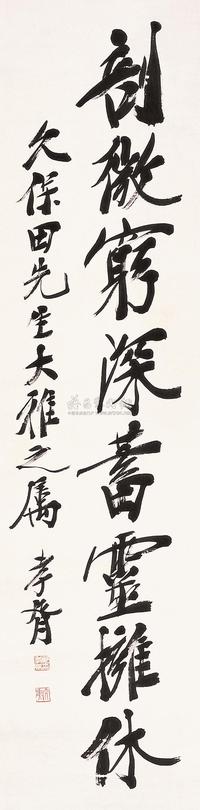 剖微窮深蓄靈擁休
久保田先生大雅之屬
孝胥